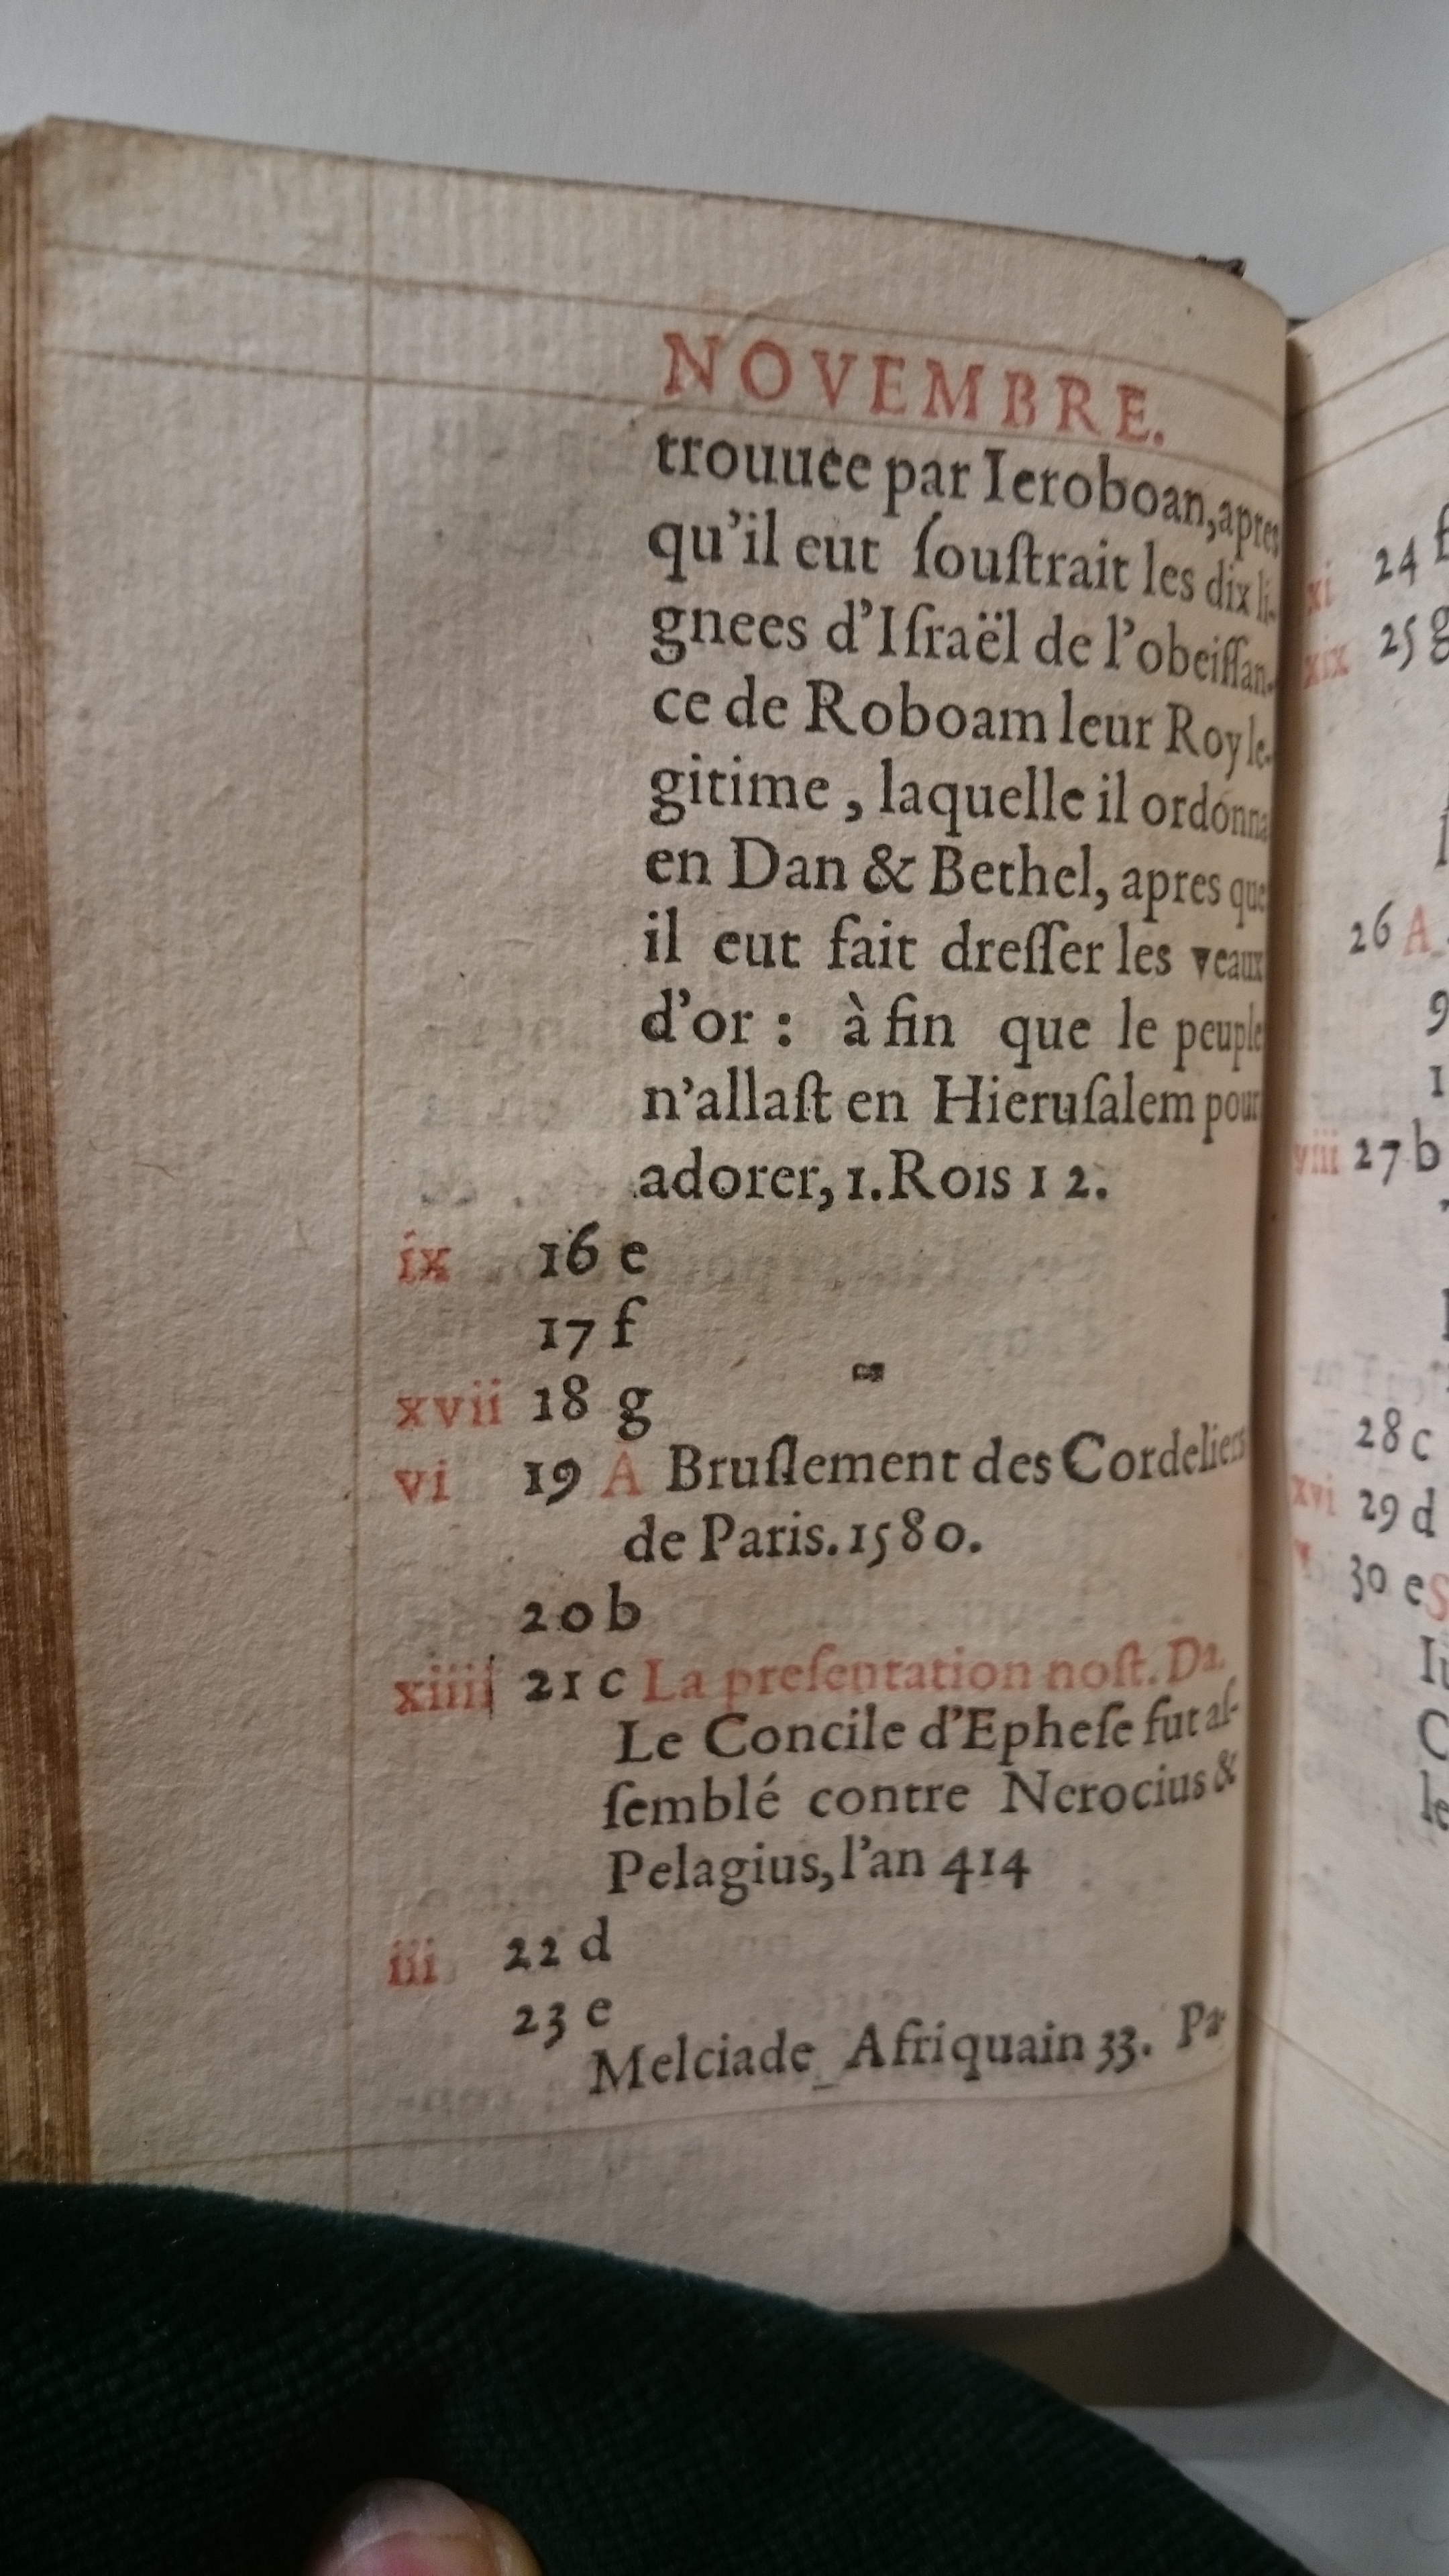 NOVEMBRE.
trouuée par Ieroboan, apres
qu'il eut ſouſtrait les dix li-
gnees d'Iſraël de l'obeiſſan-
ce de Roboam leur Roy le-
gitime , laquelle il ordonna
en Dan & Bethel, apres que
il eut fait dreſſer les veaux
d'or : à fin que le peuple
n'allaſt en Hieruſalem pour
adorer, 1. Rois 12.
ix 16 e
17 f
xvii 18 g
vi 19 A Bruſlement des Cordeliers
de Paris. 1580.
20 b
xiiii 21 c La preſentation noſt. Da.
Le Concile d'Epheſe fut aſ-
ſemblé contre Nerocius &
Pelagius, l'an 414
iii 22 d
23 e
Melciade Afriquain 33. Pa-
xi 24 f
xix 25 g
26 A
viii 27 b
28 c
xvi 29 d
30 e